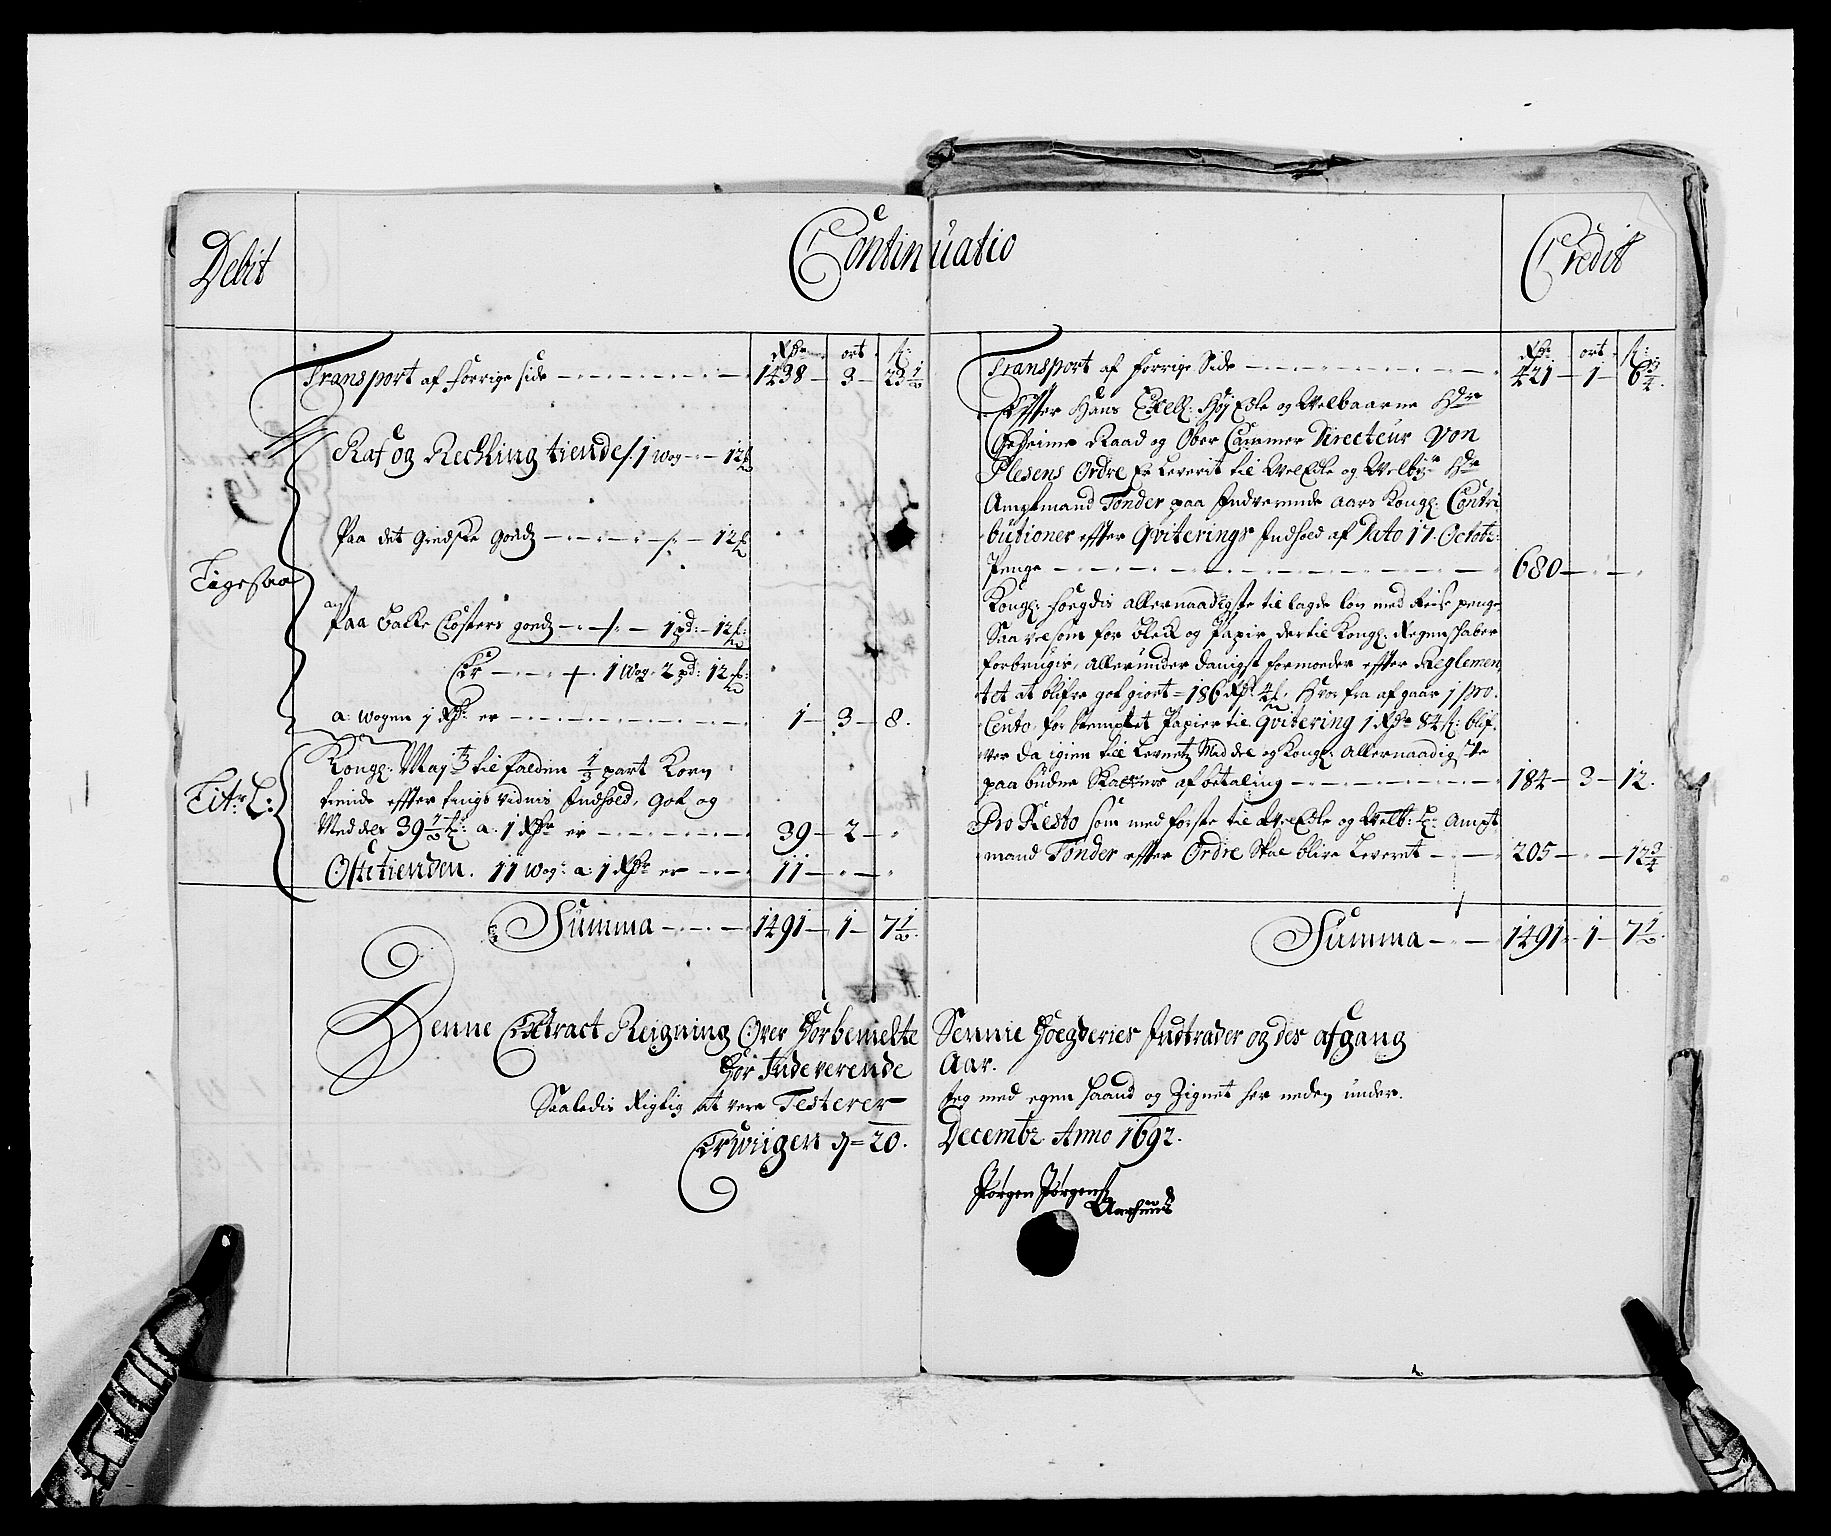 Debit
Continuatio
Credit
Rdr ort s:
Transport af forrige side 1438 - 3 - 23 1/2
Raf og Rechling tiende /. 1 wog - 12 ℔
Paa det Giedske Godz /. 12 ℔
Ligesaa
Paa Balke Closters godz /. 1 pd: 12 ℔
Er /. 1 Wog 2 pd: 12 ℔:
a: wogen 1 Rdr: er 1 - 3 - 8.
Tit: L:
Kongl: Maytz tilfalden 1/3 part Korn
tiende effter tings vidnis Indhold, gok og
Meddel 39 1/2 a: 1 Rdr er 39 - 2 -
Ostetienden. 11 wog: a: 1 Rdr er 11
Summa 1491 - 1 - 7 1/2
Rdr ort s:
Transport af forrige Side 421 - 1 - 6 3/4.
Effter Hans Excell: Høj Edle og Welbaarne Hr
Geheime Raad og Ober Cammer Directeur Von
Plesens Ordre er Leverit til WelEdle og Welbr Hr
Amptmand Tønder paa Indverende Aars Kongl: Contri
butioner effter Qviterings Indhold af Dato 17. Octobr:
Penge 680
Kongl: foegdis allernaadigste tillagde løn med Reise penge
Saavelsom for blek og Papir dertil Kongl: Regenschaber
forbrugis, allerunderdanigst formoder effter Reglemen
tet at blifve got giort = 186 Rdr 4 s. Hvor fra afgaar 1 pro.
Cento for Stemplet Papir til Qvitering 1 Rdr 84 s: blif
ver da igien til Levnetz Meddel og Kongl: Allernaadigste
paa budne Skatters afbetaling 184 - 3 - 12.
Pro Resto som med første til WelEdle og Welb: Hr Ampt
mand Tønder effter Ordre Skal blive Leveret 205 - 12 3/4
Summa 1491 - 1 - 7 1/2.
Denne Extract Reigning Over Forbemelte Sennie Foegderies Indtrader og des afgang
For Indeverende Aar.
Saaledis Rigtig at vere Testerer Jeg med egen haand og Zignet her neden under.
Erwiigen d= 20. Decembr. Anno 1692.
Jørgen Jørgens
Aarhuus